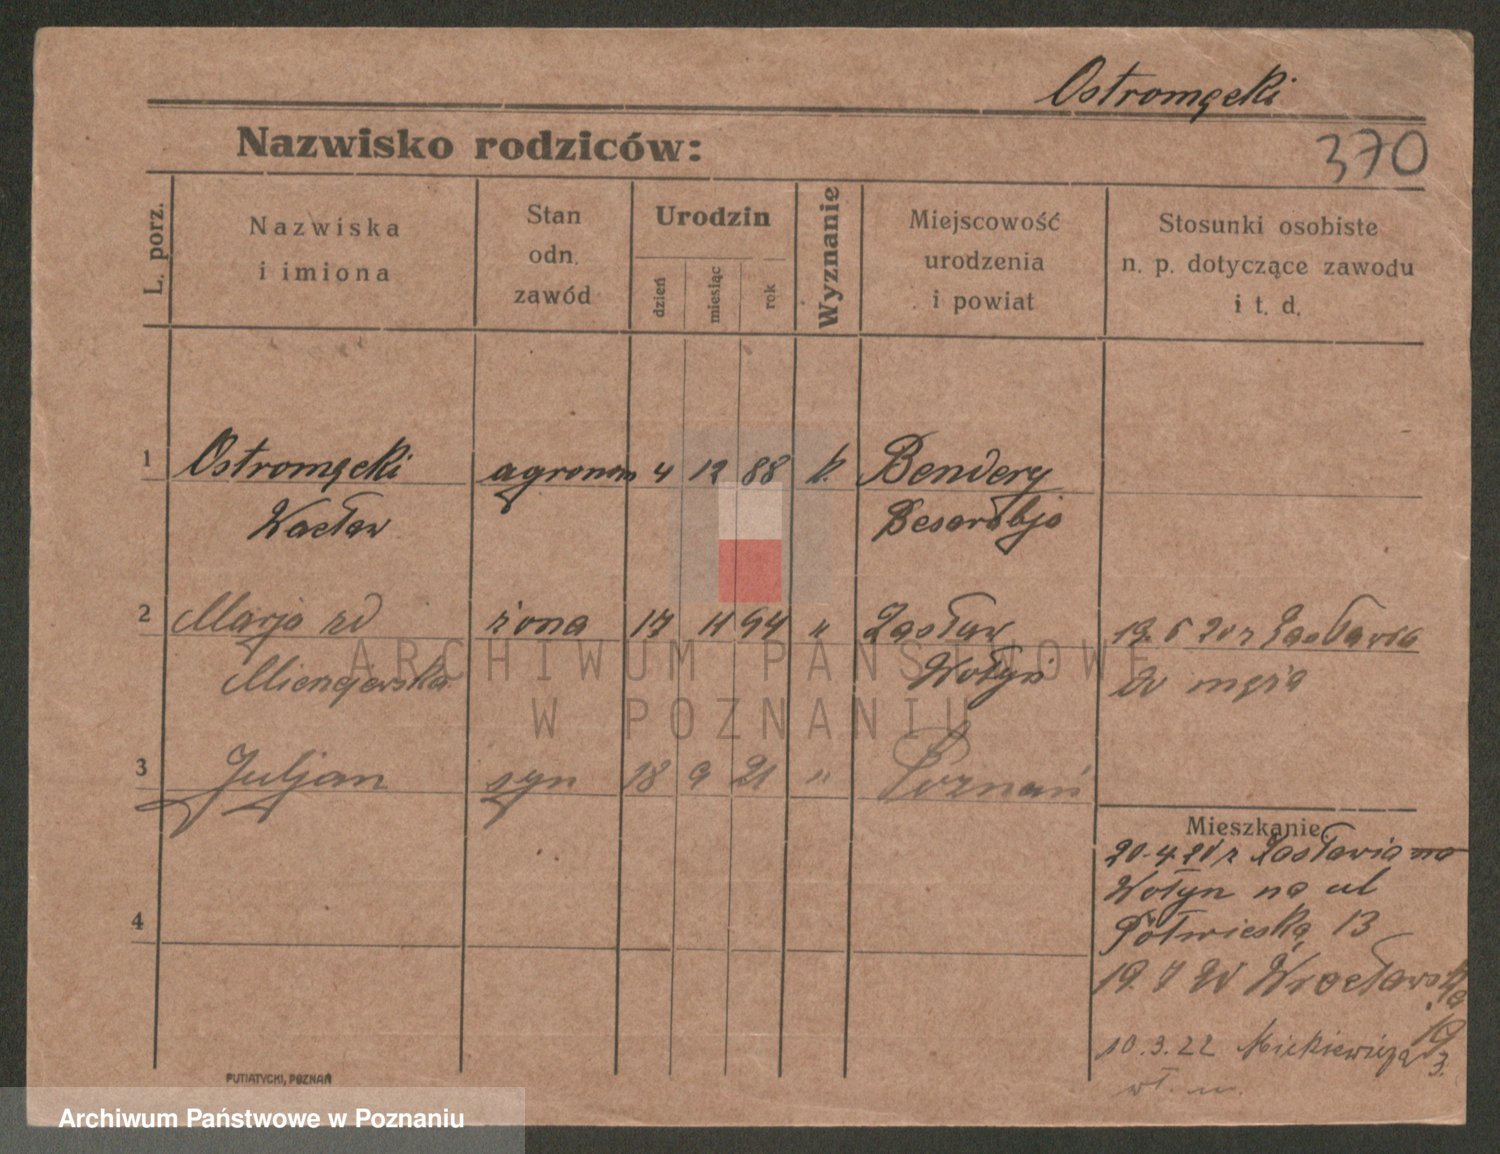 Ostromęcki
Nazwisko rodziców:
370
L. porz.
Nazwiska
i imiona
Stan
odn.
zawód
Urodzin
dzień
miesiąc
rok
Wyznanie
Miejscowość
urodzenia
i powiat
Stosunki osobiste
n. p. dotyczące zawodu
i t. d.
1 Ostromęcki agronom 4 12 88 k. Bendery
Wacław Besarabja
2 Marja zd żona 17 11 94 " Zasław 19. 6 20 z Zasławia
Wołyń do męża
3 Juljan syn 18 9 21 " Poznań
Mieszkanie
20-4 20 z Zasławia na
Wołyn na ul
Półwieską 13
19. 7 20 Wrocławska
19
10.3.22 Mickiewicza 3.
wł. m.
4
PUTIATYCKI, POZNAŃ
ARCHIWUM PAŃSTWOWE
W POZNANIU
Archiwum Państwowe w Poznaniu